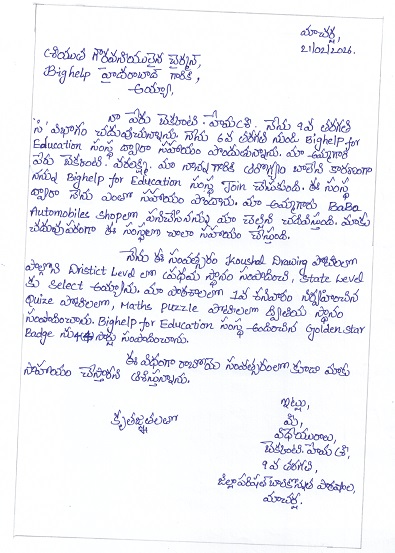 మాచర్ల,
21/02/2026.
శ్రీయుత గౌరవనీయులైన చైర్మన్,
Bighelp హైదరాబాద్ గారికి,
అయ్యా,
నా పేరు చెకూరి. హేమశ్రీ. నేను 9వ తరగతి
'సి' విభాగం చదువుచున్నాను. నేను 6వ తరగతి నుండి Bighelp for
Education సంస్థ ద్వారా సహాయం పొందుతున్నాను. మా అమ్మగారి
పేరు వరలక్ష్మి. మా నాన్న గారికి ఆరోగ్యం బాలేని కారణంగా
నన్ను Bighelp for Education సంస్థ Join చేసుకుంది. ఈ సంస్థ
ద్వారా నేను ఎంతో సహాయం పొందాను. మా అమ్మగారు BaBa
Automobiles shopలో పనిచేసి నన్ను మా చెల్లిని చదివిస్తుంది. మాకు
చదువుపరంగా ఈ సంస్థ చాలా సహాయం చేస్తుంది.
నేను ఈ సంవత్సరం Koushal Drawing పోటీలలో
పాల్గొని District Level లో ప్రథమ స్థానం సంపాదించి, State Level
కు Select అయ్యాను. మా పాఠశాలలో 1వ శనివారం నిర్వహించిన
Quize పోటీలలో, Maths Puzzle పోటీలలో ద్వితీయ స్థానం
సంపాదించాను. Bighelp for Education సంస్థ అందించిన Golden Star
Badge ను సార్లు సంపాదించాను.
ఈ విధంగా రాబోయే సంవత్సరంలో కూడా మాకు
సాహాయం చేస్తారని ఆశిస్తున్నాను.
ఇట్లు,
మీ,
కృతజ్ఞతలతో
విధేయురాలు,
హేమ శ్రీ,
9వ తరగతి,
జిల్లా పరిషత్ బాలికోన్నత పాఠశాల,
మాచర్ల.